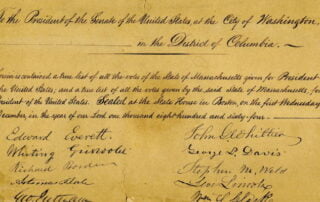 To the President of the Senate of the United States, at the City of Washington,
in the District of Columbia.
is contained a true list of all the votes of the State of Massachusetts given for President
the United States, and a true list of all the votes given by the said State of Massachusetts, for
President of the United States. Sealed at the State House in Boston, on the first Wednesday
December, in the year of our Lord one thousand eight hundred and sixty-four.
Edward Everett. John G Whittier
Whiting Griswold George L. Davis
Richard Borden Stephen M. Weld
Levi Lincoln